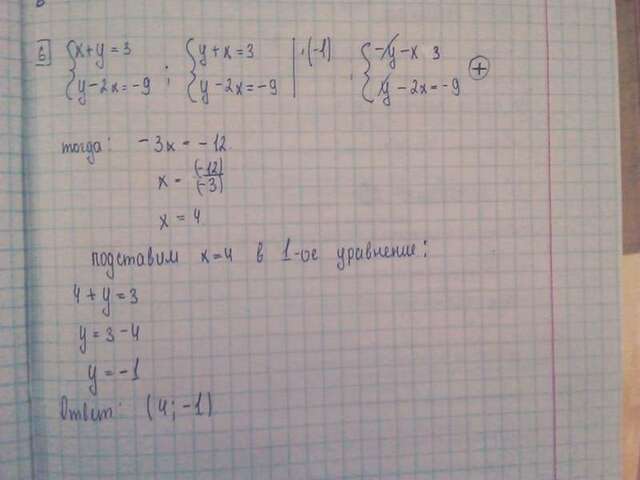 б) { x+y=3 ; { y+x=3 | ·(-1) ; { -y-x 3
{ y-2x=-9 { y-2x=-9 | { y-2x=-9 (+)
тогда: -3x = -12
x = (-12)/(-3)
x = 4
подставим x=4 в 1-ое уравнение:
4+y=3
y=3-4
y=-1
Ответ: (4; -1)